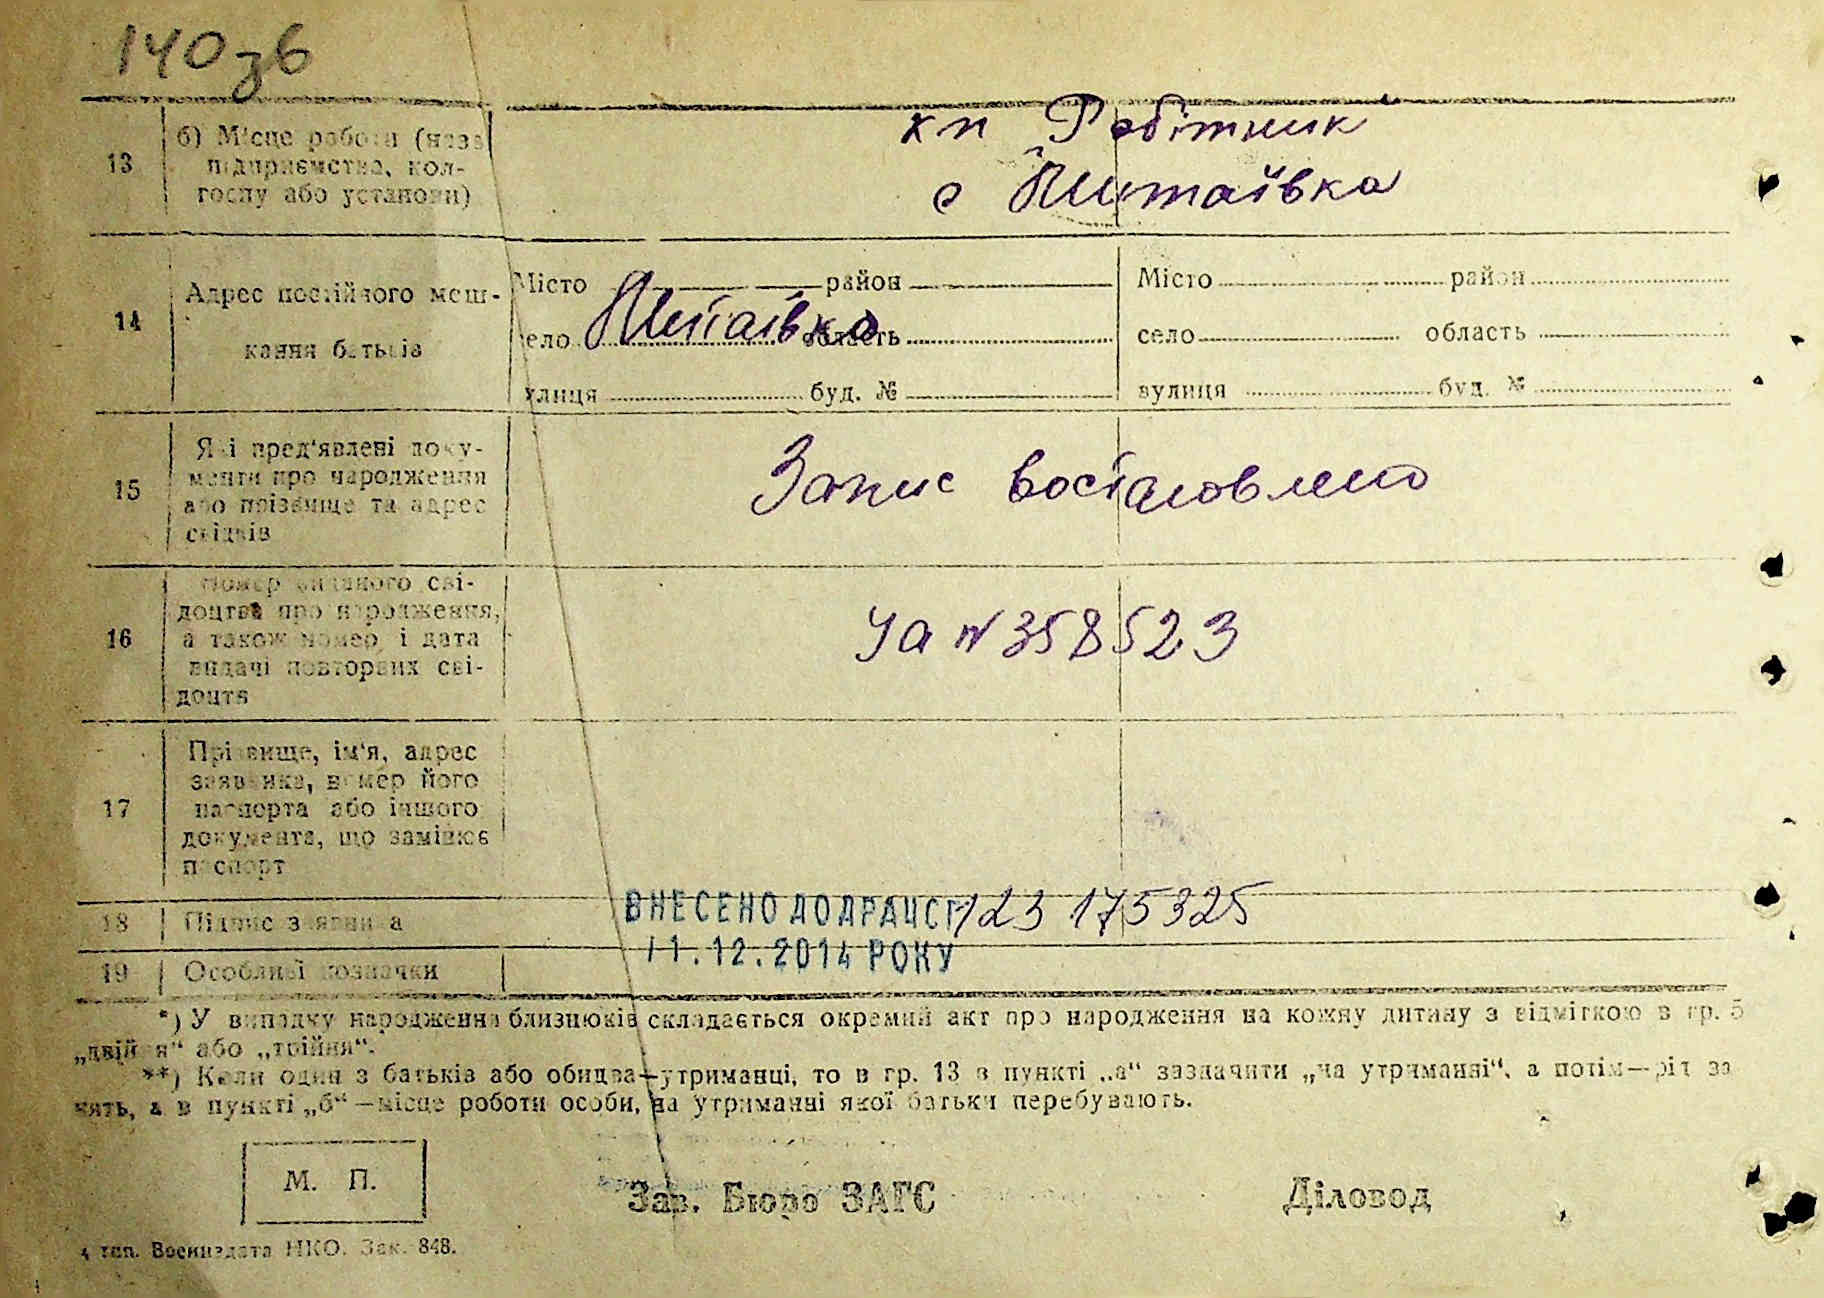 140зв
13
б) Місце роботи (назва
підприємства, кол-
госпу або установи)
кп Робітник
с Титаївка
14
Адрес постійного меш-
кання батьків
Місто район
село Титаївка область
вулиця буд. №
Місто район
село область
вулиця буд. №
15
Які пред'явлені доку-
менти про народження
або прізвище та адрес
свідків
Запис востановлено
16
Номер виданого сві-
доцтва про народження,
а також номер і дата
видачі повторних сві-
доцтв
Уа № 358523
17
Прізвище, ім'я, адрес
заявника, номер його
паспорта або іншого
документа, що замінює
паспорт
18
Підпис заявника
ВНЕСЕНО ДО ДРАЦСГ 123 175325
11.12.2014 РОКУ
19
Особливі позначки
*) У випадку народження близнюків складається окремий акт про народження на кожну дитину з відміткою в гр. 5
„двійня“ або „трійня“.
**) Коли один з батьків або обидва—утриманці, то в гр. 13 в пункті „а“ зазначити „на утриманні“, а потім—рід за
нять, а в пункті „б“—місце роботи особи, на утриманні якої батьки перебувають.
М. П.
Зав. Бюро ЗАГС
Діловод
4 тип. Воениздата НКО. Зак. 848.